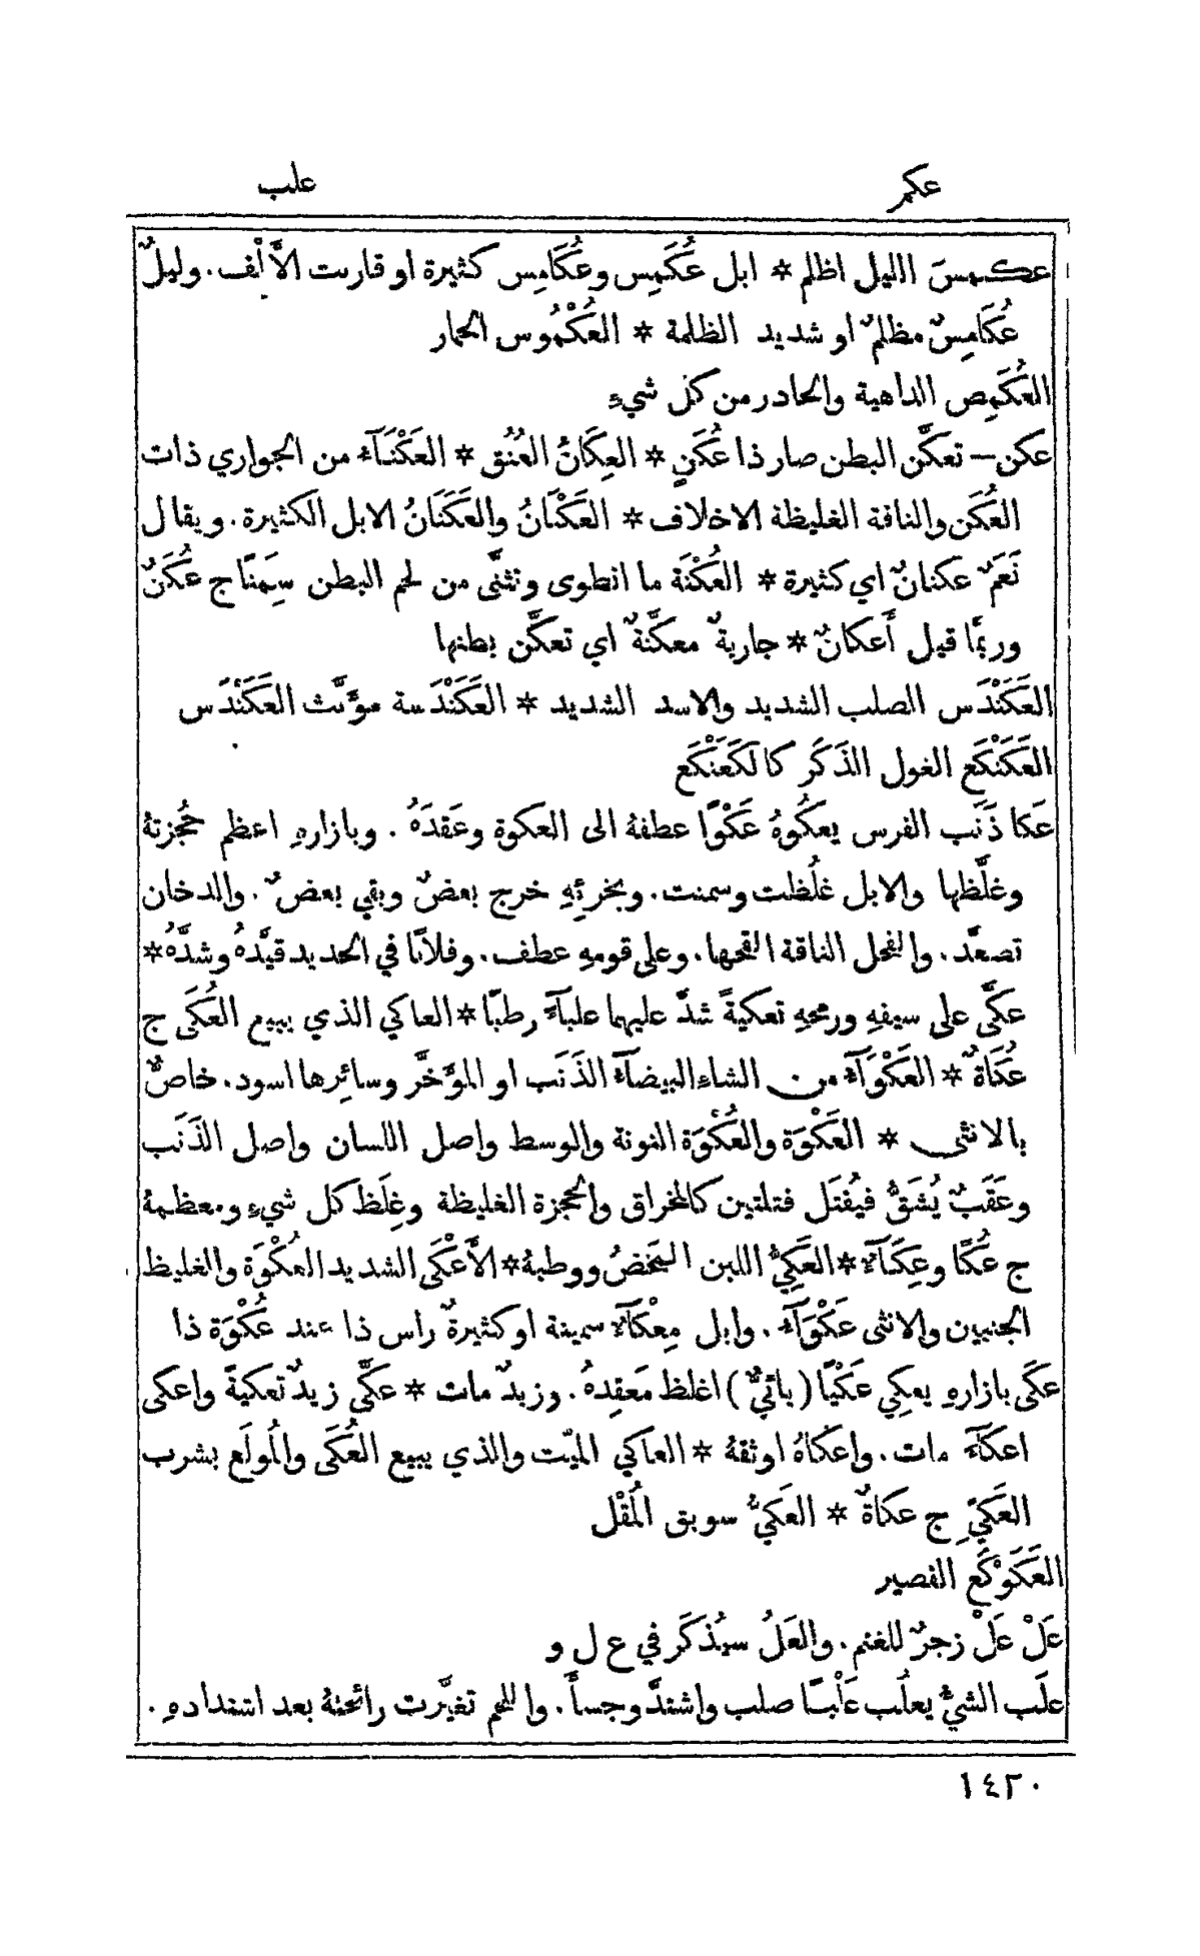 عكمـ
علب
عكمسَ الليل اظلم * ابل عُكَمِس وعُكَامِس كثيرة او قاربت الأَلْف. وليلٌ
عُكَامِسٌ مظلمٌ او شديد الظلمة * العُكْمُوس الحمار
العُكَمِص الداهية والحادر من كل شيءٍ
عكن – تعكَّن البطن صار ذا عُكَنٍ * العِكَانُ العُنُق * العَكْنَآءُ من الجواري ذات
العُكَن والناقة الغليظة الاخلاف * العَكْنَانُ والعَكَنَانُ الابل الكثيرة. ويقال
نَعَمٌ عكنانٌ اي كثيرة * العُكْنَة ما انطوى وتثنَّى من لحم البطن سِمَنًا ج عُكَنٌ
وربَّما قيل أَعكانٌ * جاريةٌ معكَّنةٌ اي تعكَّن بطنها
العَكَنْدَس الصلب الشديد والاسد الشديد * العَكَنْدَسة مؤَنَّث العَكَنْدَس
العَكَنْكَع الغول الذَكَر كالكَعَنْكَع
عَكَا ذَنَب الفرس يعكُوهُ عَكْوًا عطفهُ الى العكوة وعَقَدَهُ. وبازارهِ اعظم حُجزتهُ
وغلَّظها والابل غلُظت وسمنت. وبخرئِهِ خرج بعضٌ وبقي بعضٌ. والدخان
تصعَّد. والفحل الناقة القحها. وعلى قومهِ عطف. وفلانًا في الحديد قيَّدهُ وشدَّهُ *
عكَّى على سيفهِ ورمحهِ تعكيةً شدَّ عليهما علبآءً رطبًا * العاكي الذي يبيع العُكَى ج
عُكَاةٌ * العَكْوَآءُ من الشاءِ البيضآءُ الذَنَب او المؤَخَّر وسائرها اسود. خاصٌّ
بالانثى * العَكْوَة والعُكْوَة النونة والوسط واصل اللسان واصل الذَنَب
وعَقَبٌ يُشَقُّ فيُفتَل فتلتين كالمخراق والحجزة الغليظة وغِلَظ كل شيءٍ ومعظمهُ
ج عُكًا وعِكَآءٌ * العَكِيُّ اللبن المَخَضُ ووطبهُ * الأَعْكَى الشديد العُكْوَة والغليظ
الجنبين والانثى عَكْوَآءُ. وابل مِعْكَآءٌ سمينة او كثيرةٌ راس ذا عند عُكْوَة ذا
عكَى بازارهِ يعكِي عَكْيًا (يائيٌّ) اغلظ مَعقِدهُ. وزيدٌ مات * عكَّى زيدٌ تعكيةً واعكى
اعكآءً مات. واعكاهُ اوثقهُ * العاكي الميّت والذي يبيع العُكَى والمُولَع بشرب
العَكِيِّ ج عكاةٌ * العَكِيُّ سويق المُقْل
العَكَوْكَع القصير
عَلْ عَلْ زجرٌ للغنم. والعَلُ سيُذكَر في ع ل و
علَب الشيءُ يعلُب عَلْبًا صلب واشتدَّ وجسأَ. واللحم تغيَّرت رائحتهُ بعد اشتدادهِ.
١٤٢٠